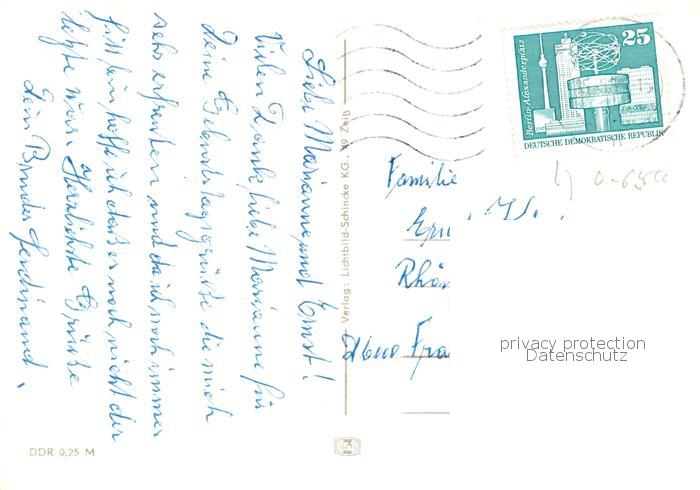 Liebe Marianne und Ernst!
Vielen Dank liebe Marianne für
Deine Geburtstagsgrüße die mich
sehr erfreuten und da ich noch immer
fit bin, hoffe ich daß es noch nicht der
letzte war. Herzlichste Grüße
Dein Bruder Ferdinand.
DDR 0,25 M
Verlag: Lichtbild-Schincke KG., 49 Zeitz
Berlin-Alexanderplatz
25
DEUTSCHE DEMOKRATISCHE REPUBLIK
Familie
privacy protection
Datenschutz